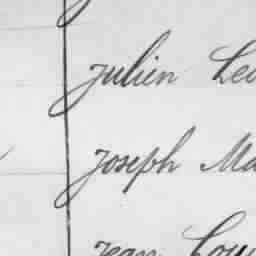 Julien Leo
Joseph Ma
Jean Loui